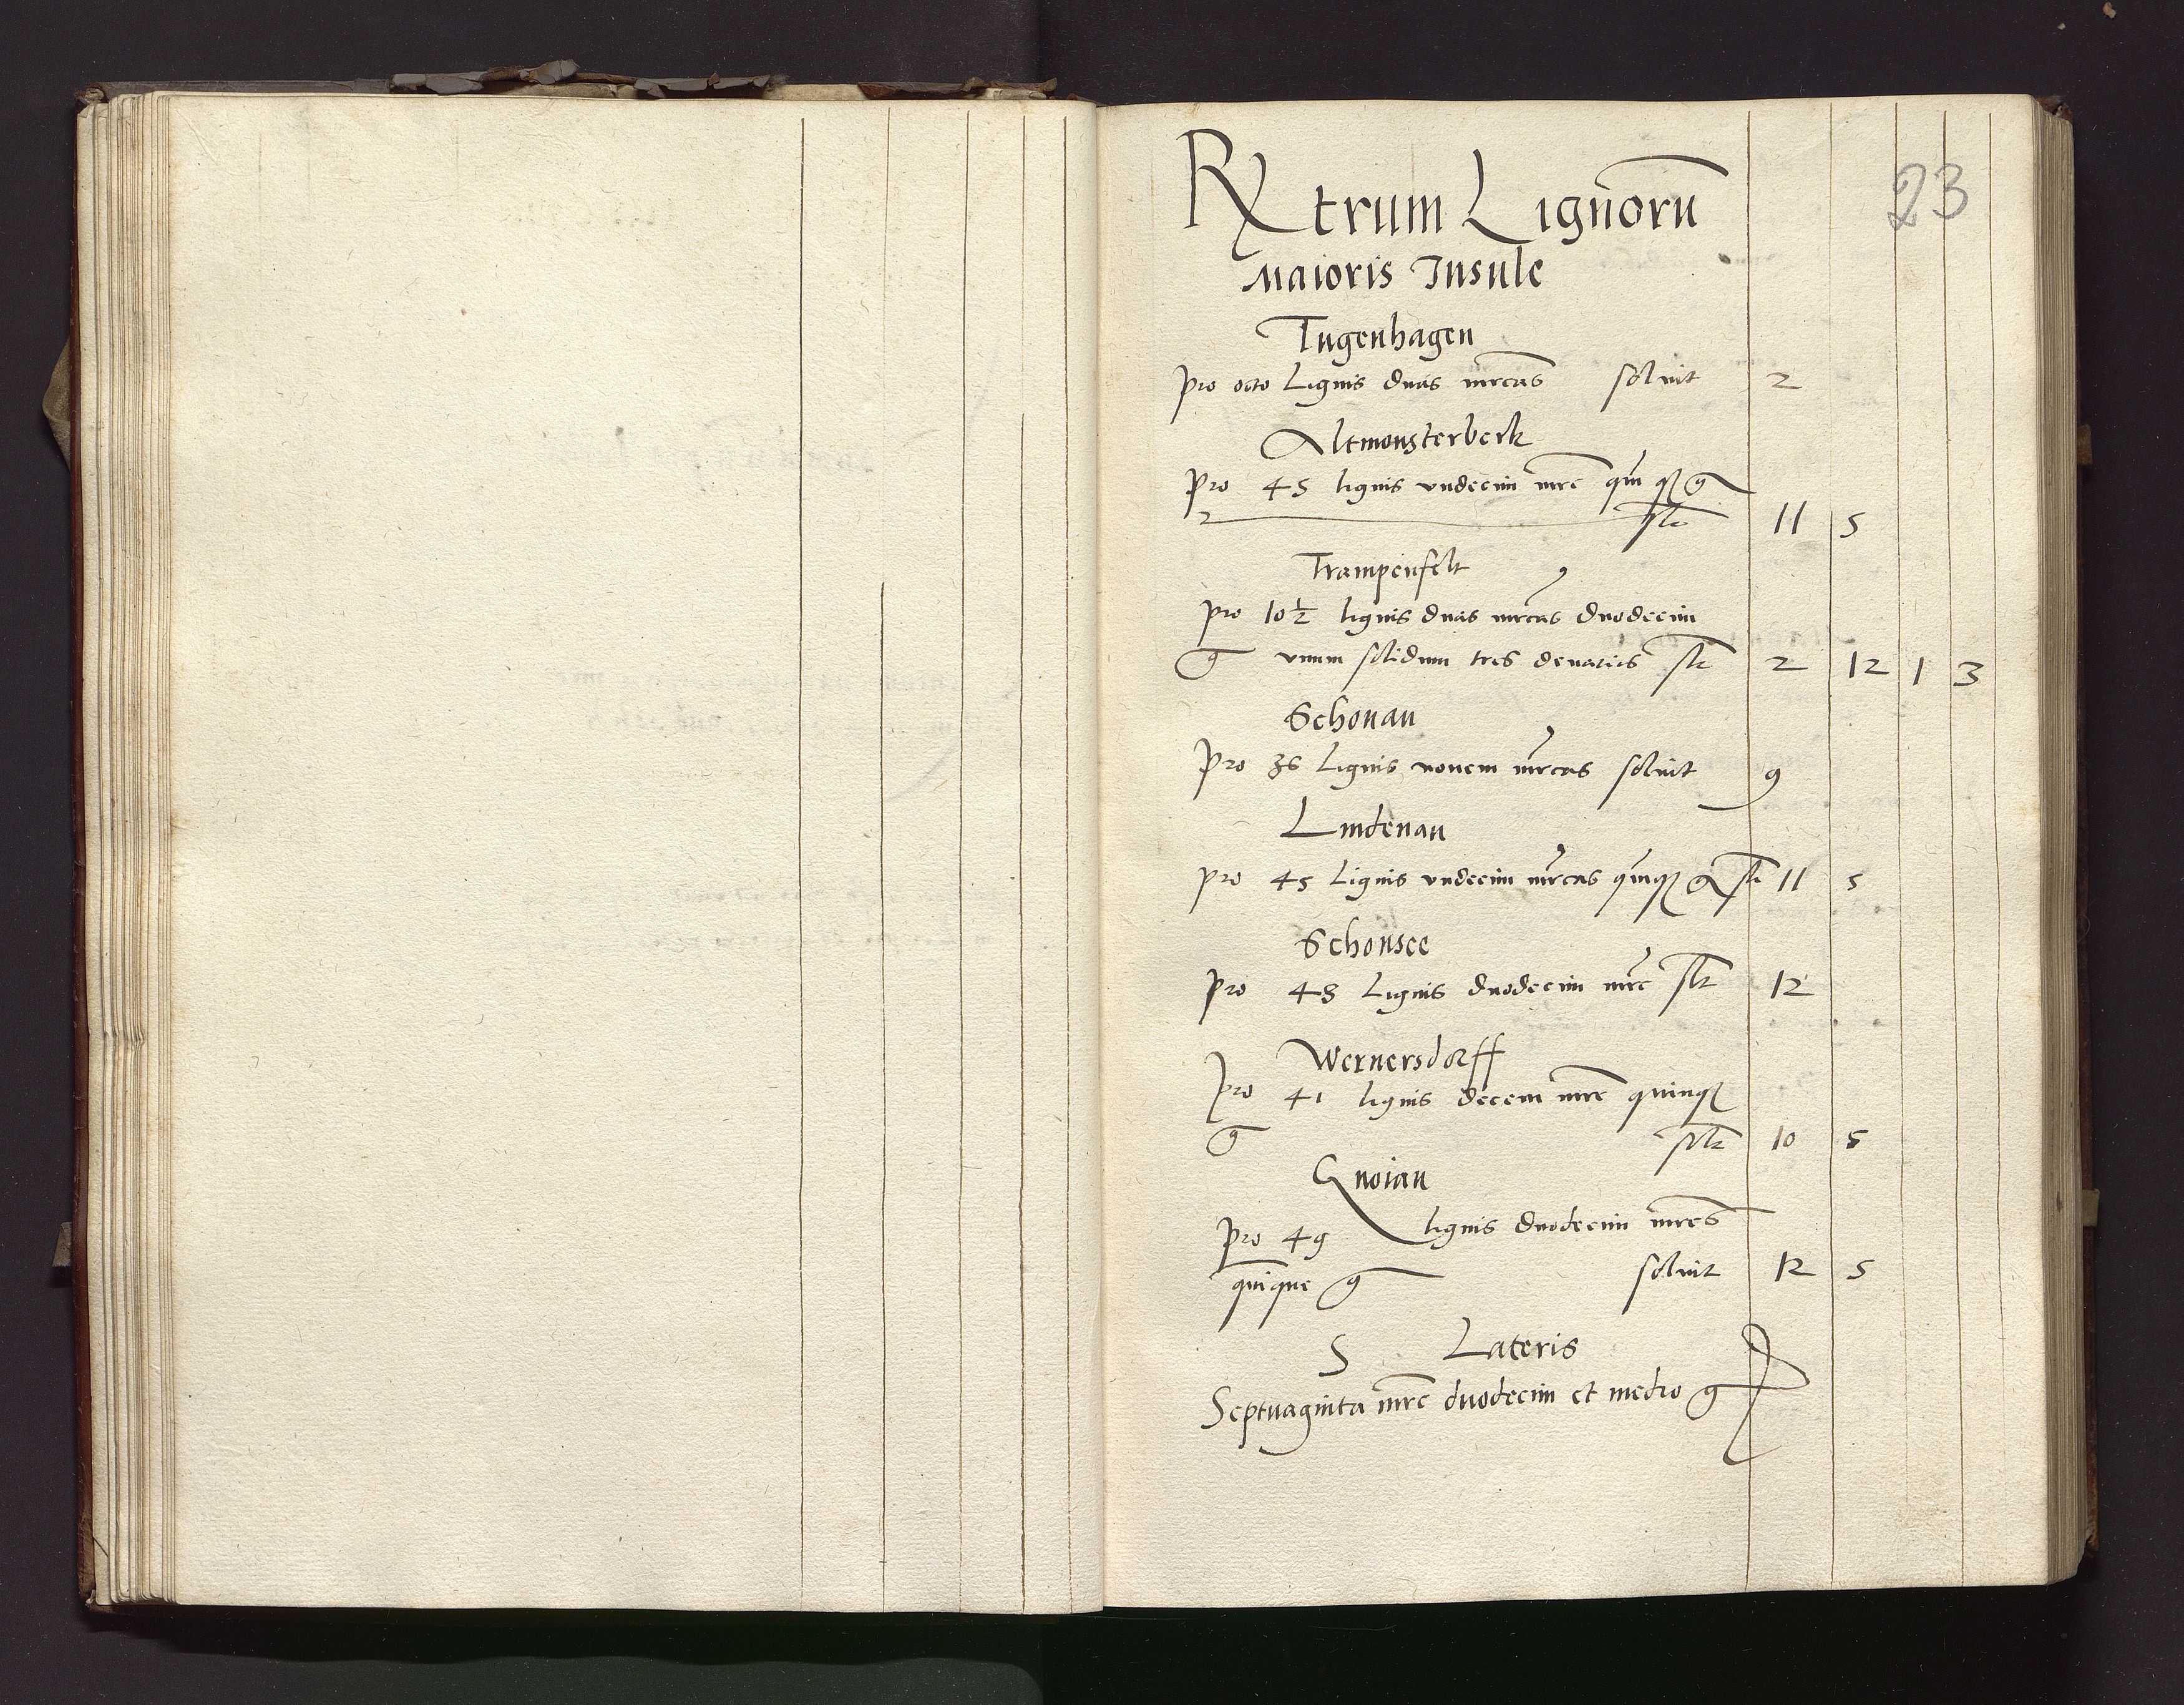 23
Rx trum Lignorū
Maioris Insule
Tugenhagen
pro octo Lignis duas mrcas soluit 2
Altmonsterberk
pro 45 lignis vndecim mrc quinqꝫ g
slt 11 5
Trampenfelt
pro 10½ lignis duas mrcas duodecim
g vnum solidum tres denarios slt 2 12 1 3
Schonau
pro 36 Lignis nouem mrcas soluit 9
Lindenau
pro 45 Lignis vndecim mrcas quinqꝫ g slt 11 5
Schonsee
pro 48 Lignis duodecim mrc slt 12
Wernersdorff
pro 41 lignis decem mrc quinqꝫ
g solt 10 5
Gnoian
pro 49 lignis duodecim mrcs
quīque g soluit 12 5
S Lateris
Septuaginta mrc duodecim et medio g